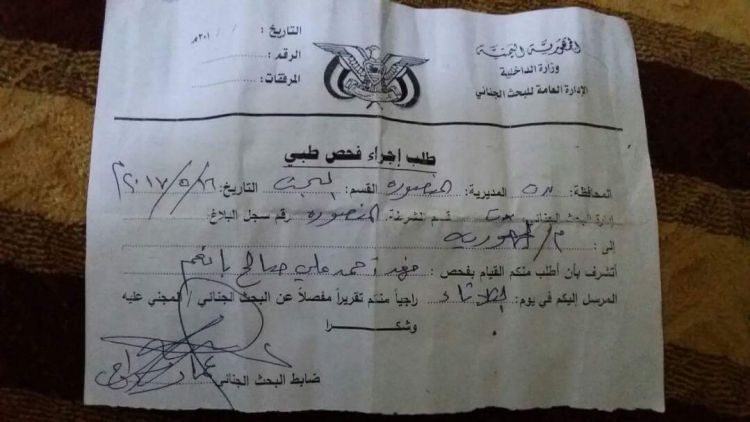 الجمهورية اليمنية
وزارة الداخلية
الإدارة العامة للبحث الجنائي
التاريخ : / / ٢٠١م
الرقم :
المرفقات :
طلب إجراء فحص طبي
المحافظة: عدن المديرية: المنصورة القسم: البحث التاريخ: ١٦/٥/٢٠١٧م
إدارة البحث الجنائي قسم شرطة: المنصورة رقم سجل البلاغ
إلى : م/ الجمهورية
أتشرف بأن أطلب منكم القيام بفحص : فهد أحمد علي صالح بانعم
المرسل إليكم في يوم: الثلاثاء راجياً منكم تقريراً مفصلاً عن البحث الجنائي / المجني عليه
وشكرا
ضابط البحث الجنائي